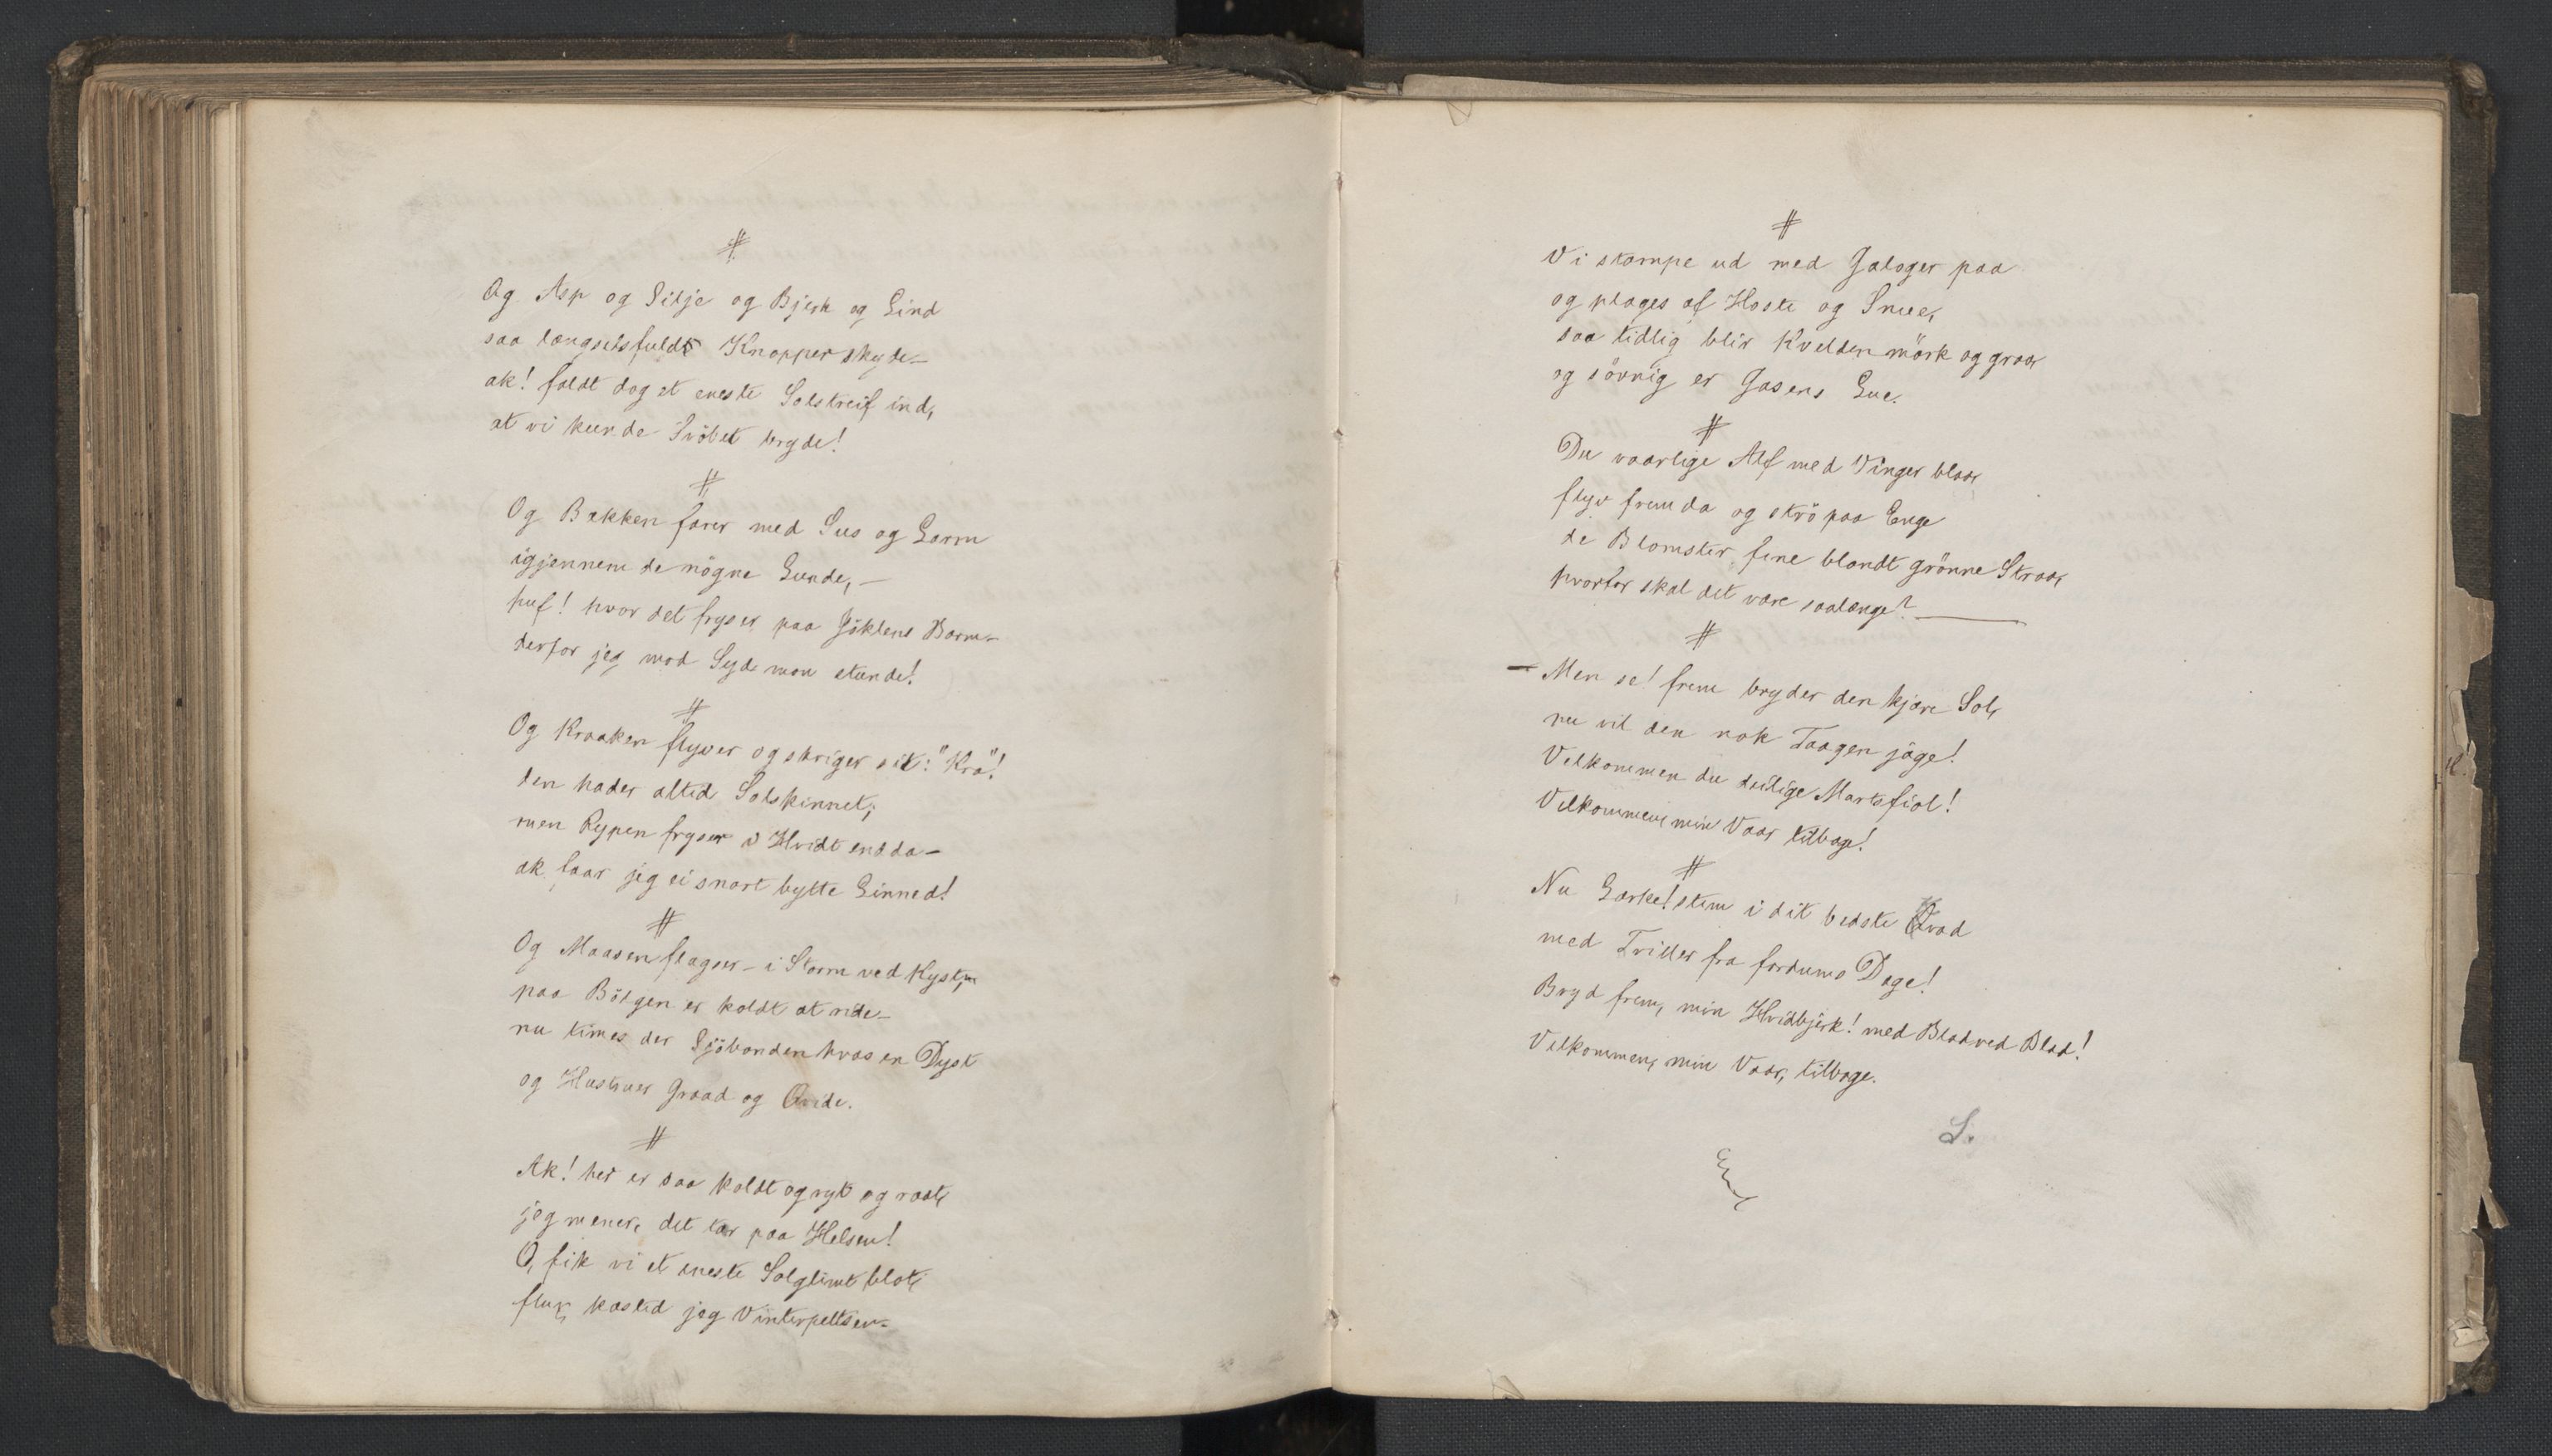 #
Og Asp og Silje og Bjerk og Lind
saa længselsfuldt Knopper skyde–
ak! faldt dog et eneste Solstreif ind,
at vi kunde Svöbet bryde!
#
Og Bækken farer med Sus og Larm
igjennem de nögne Lunde, –
huf! hvor det fryser paa Jöklens Barm–
derfor jeg mod Syd mon stunde!
#
Og Kraaken flyver og skriger sit: "Kra"!
den hader altid Solskinnet;
men Rypen fryser i Hvidt endda–
ak, faar jeg ei snart bytte Linned!
#
Og Maasen flagser – i Storm ved Kysten
paa Bölgen er koldt at ride–
nu times der Sjöbonden hvas en Dyst
og Hustruer Graad og Qvide.
#
Ak! her er saa koldt og vyt og raat,
jeg mener, det tær paa Helsen!
O, fik vi et eneste Solglimt blot,
flux kasted jeg Vinterpeltsen–
#
Vi stampe ud med Galoger paa
og plages af Hoste og Snue,
saa tidlig blir Kvelden mörk og graa,
og sövnig er Gasens Lue.
#
Du vaarlige Alf med Vinger blaa,
flyv frem da og strö paa Enge
de Blomster fine blandt grönne Straa,
hvorfor skal det være saalænge? –
#
– Men se! frem bryder den kjære Sol,
nu vil den nok Taagen jage!
Velkommen du deilige Martsfiol!
Velkommen, min Vaar tilbage!
#
Nu Lærke! stem i dit bedste Kvad
med Triller fra fordums Dage!
Bryd frem, min Hvidbjerk! med Blad ved Blad!
Velkommen, min Vaar, tilbage.
L.